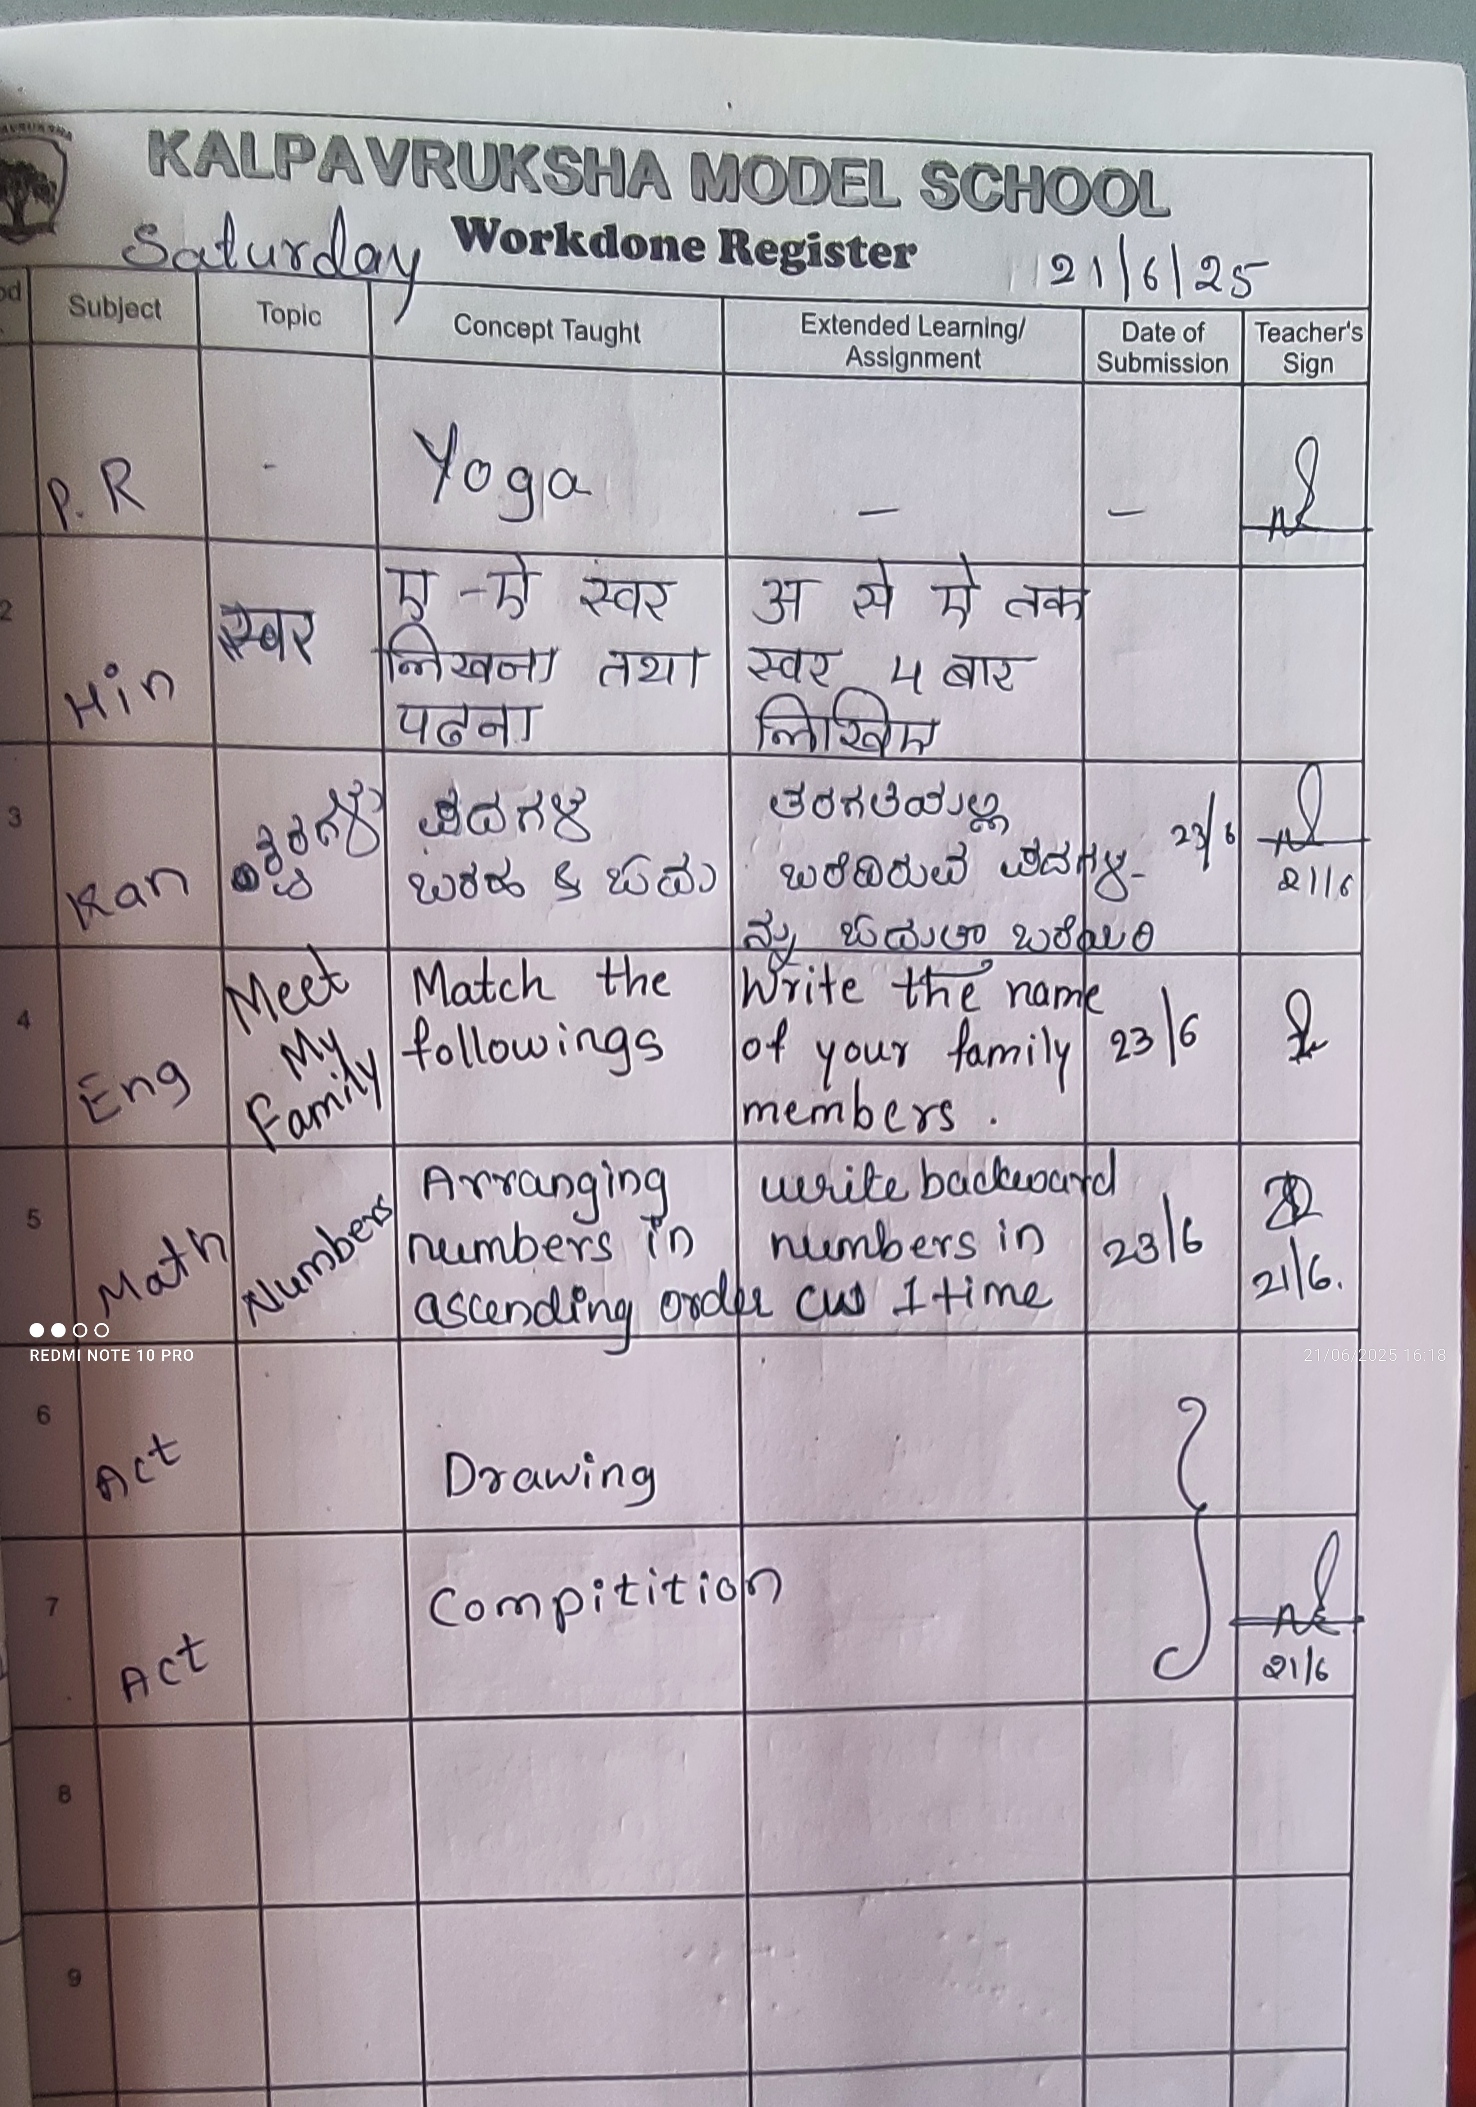 KALPAVRUKSHA MODEL SCHOOL
Workdone Register
Saturday
21/6/25
Subject
Topic
Concept Taught
Extended Learning/
Assignment
Date of
Submission
Teacher's
Sign
P.R
-
Yoga
-
-
2
Hin
स्वर
ए -ऐ स्वर
लिखना तथा
पढना
अ से ऐ तक
स्वर 4 बार
लिखिए
3
Kan
ಪದಗಳ
ಬರಹ & ಓದು
ತರಗತಿಯಲ್ಲಿ
ಬರೆದಿರುವ ಪದಗಳ-
ನ್ನು ಓದುತಾ ಬರೆಯಿರಿ
23/6
21/6
4
Eng
Meet
My
Family
Match the
followings
Write the name
of your family
members.
23/6
5
Math
Numbers
Arranging
numbers in
ascending order
write backward
numbers in
cw 1 time
23/6
21/6.
REDMI NOTE 10 PRO
21/06/2025 16:18
6
Act
Drawing
7
Act
Compitition
21/6
8
9